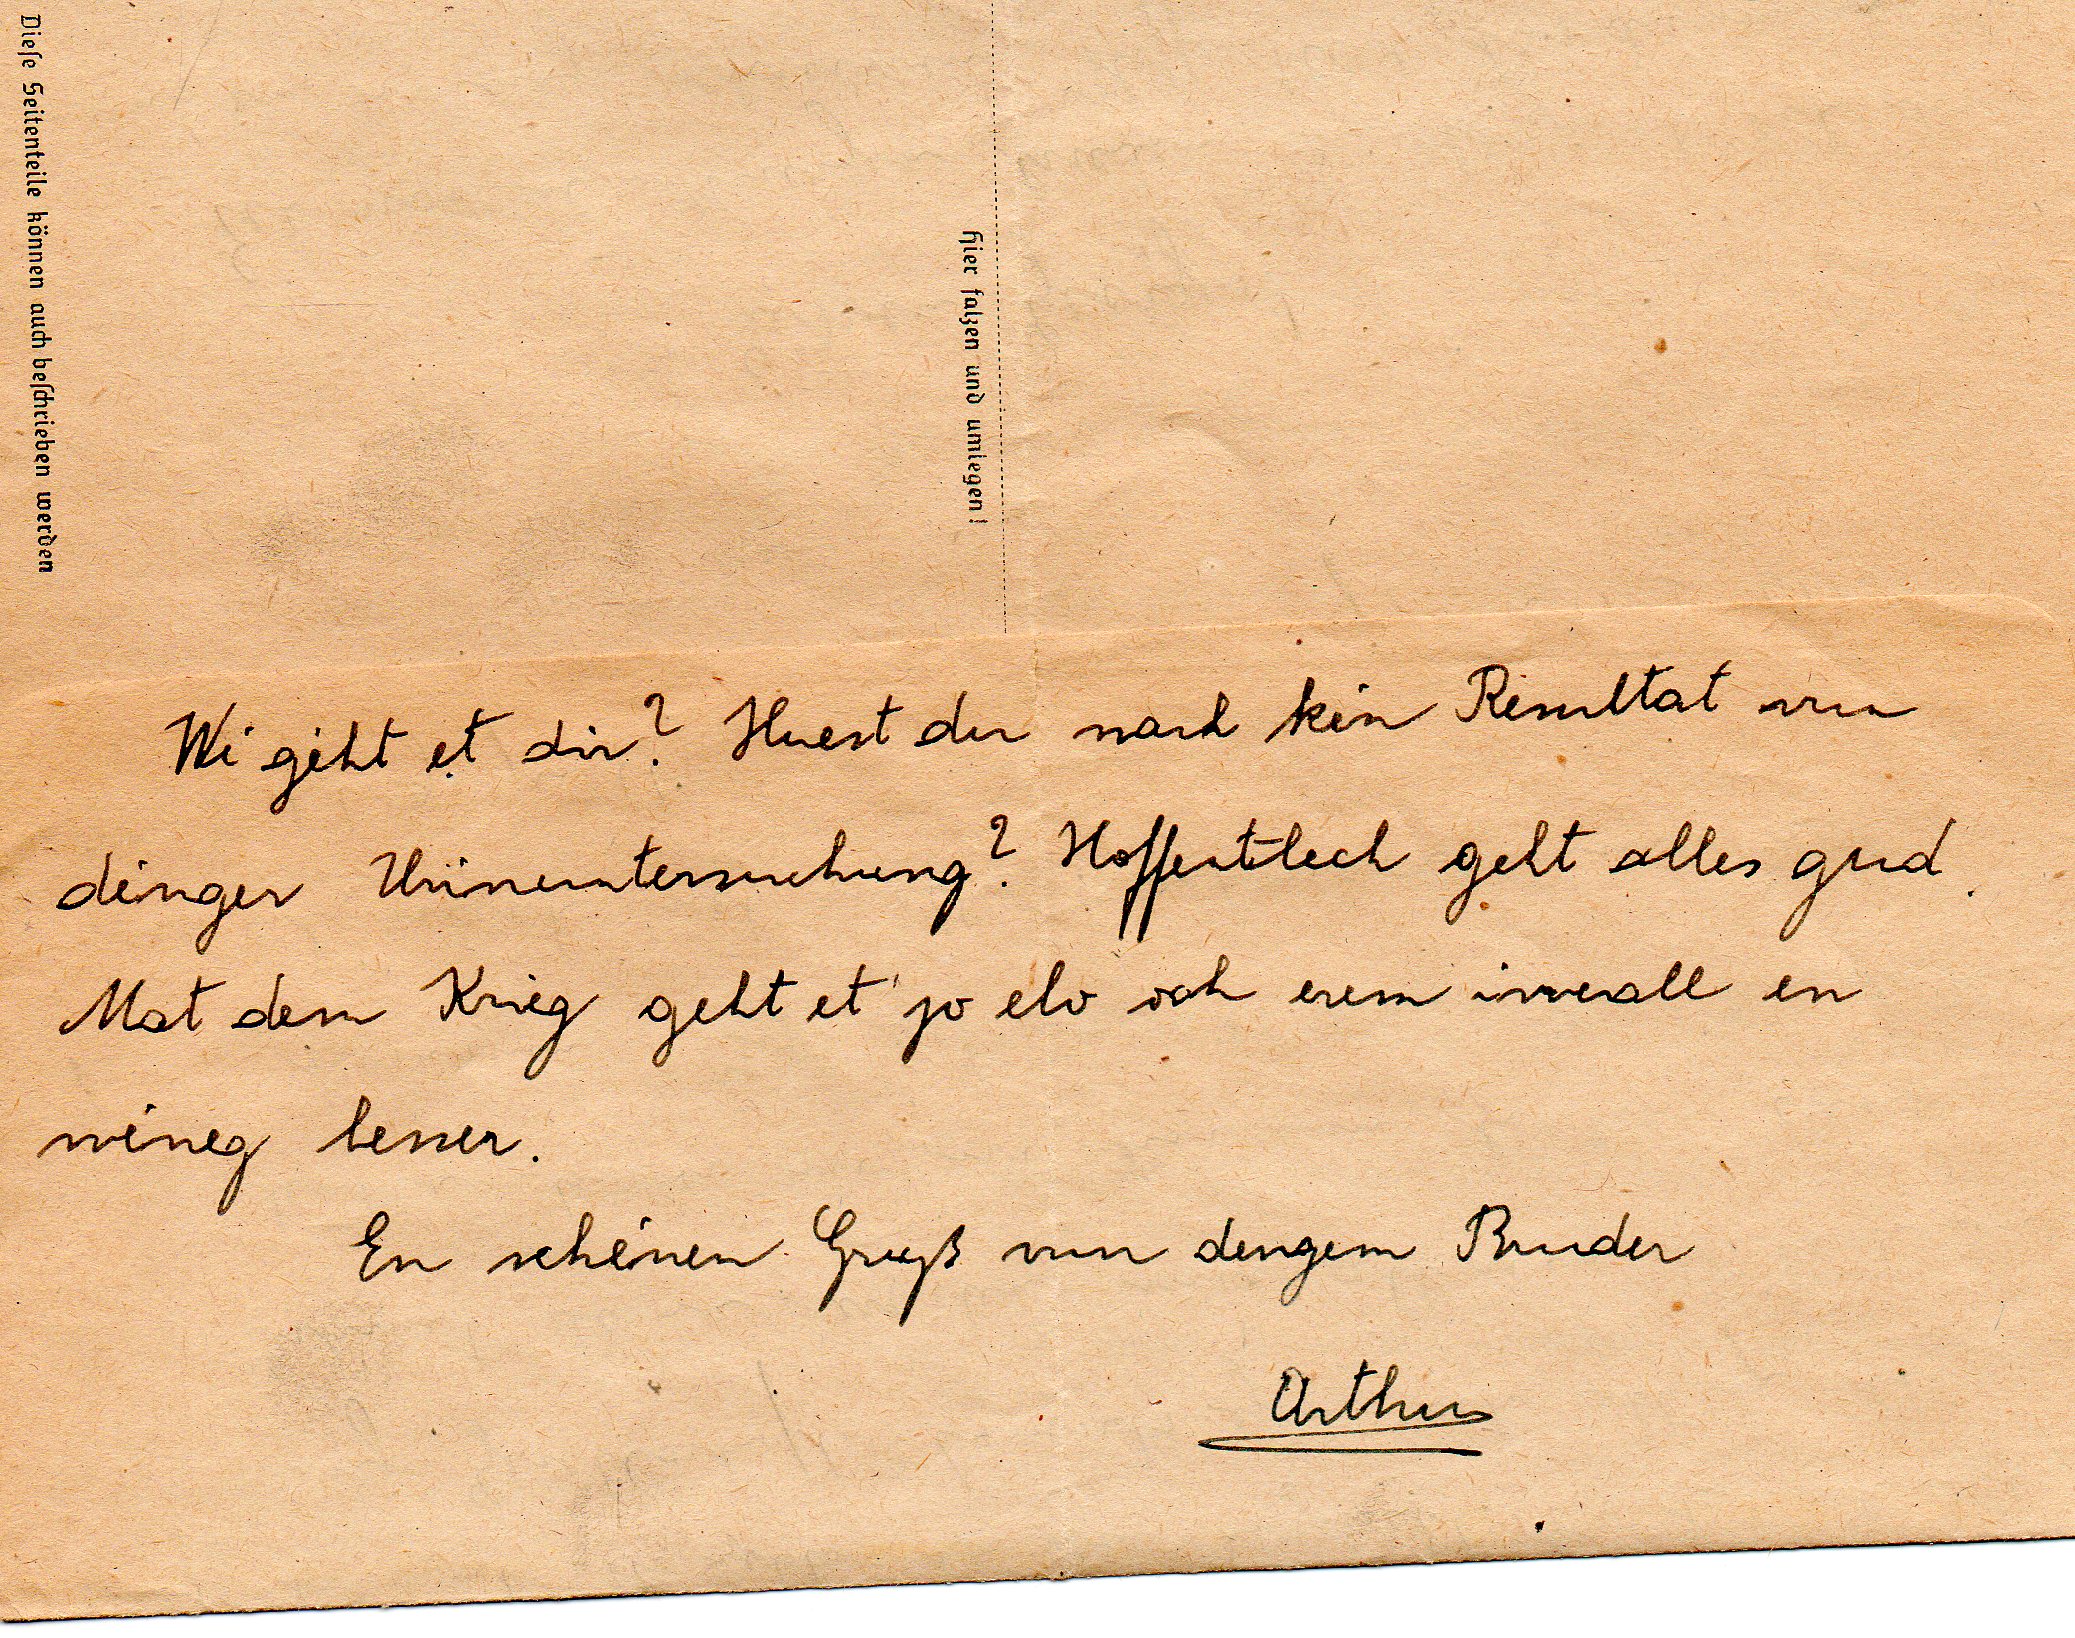 Diese Seitenteile können auch beschrieben werden
Hier falzen und umlegen!
Wi géht et dir? Huest du nach kén Resultat vun
dénger Urinuntersuchung? Hoffentlech geht alles gud.
Mat dem Krieg geht et jo elo och erem iwerall en
wéneg besser.
En schénen Gruß vun dengem Bruder
Arthur